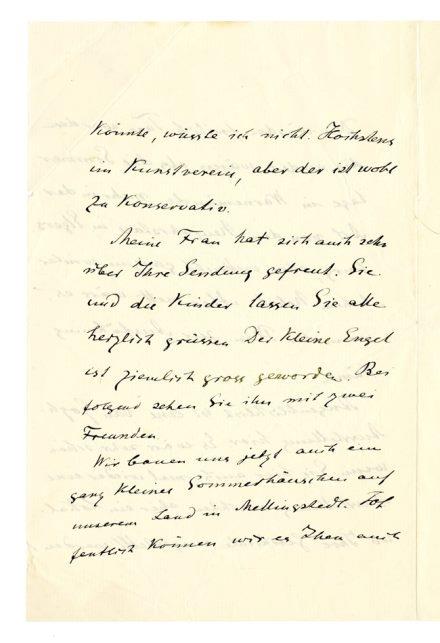 könnte, wüsste ich nicht. Höchstens
im Kunstverein, aber der ist wohl
zu Konservativ.
Meine Frau hat sich auch sehr
über Ihre Sendung gefreut. Sie
und die Kinder lassen Sie alle
herzlich grüssen Der kleine Engel
ist ziemlich gross geworden. Bei
folgend sehen Sie ihn mit zwei
Freunden
Wir bauen uns jetzt auch ein
ganz kleines Sommerhäuschen auf
unserem Land in Mellingstedt. Hof
fentlich können wir es Ihnen auch